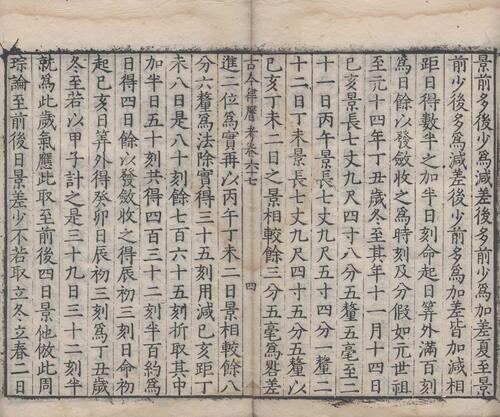 景前多後少爲減差後多前少爲加差夏至景
前少後多爲減差後少前多爲加差皆加減相
距日得數半之加半日刻命起日筭外滿百刻
爲日餘以發斂收之爲時刻及分假如元世祖
至元十四年丁丑歲冬至其年十一月十四日
己亥景長七丈九尺四寸八分五釐五毫至二
十一日丙午景長七丈九尺五寸四分一釐二
十二日丁未景長七丈九尺四寸五分五釐以
己亥丁未二日之景相較餘三分五毫爲晷差
古今律曆考卷六十七 四
進二位爲實再以丙午丁未二日景相較餘八
分六釐爲法除實得三十五刻用減己亥距丁
未八日是八十刻餘七百六十五刻折取其中
加半日五十刻共得四百三十二刻半百約爲
日得四日餘以發斂收之得辰初三刻日命初
起己亥日筭外得癸卯日辰初三刻爲丁丑歲
冬至若以甲子計之是三十九日三十二刻半
就爲此歲氣應此取至前後四日景他倣此周
琮論至前後日景差少不若取立冬立春二日